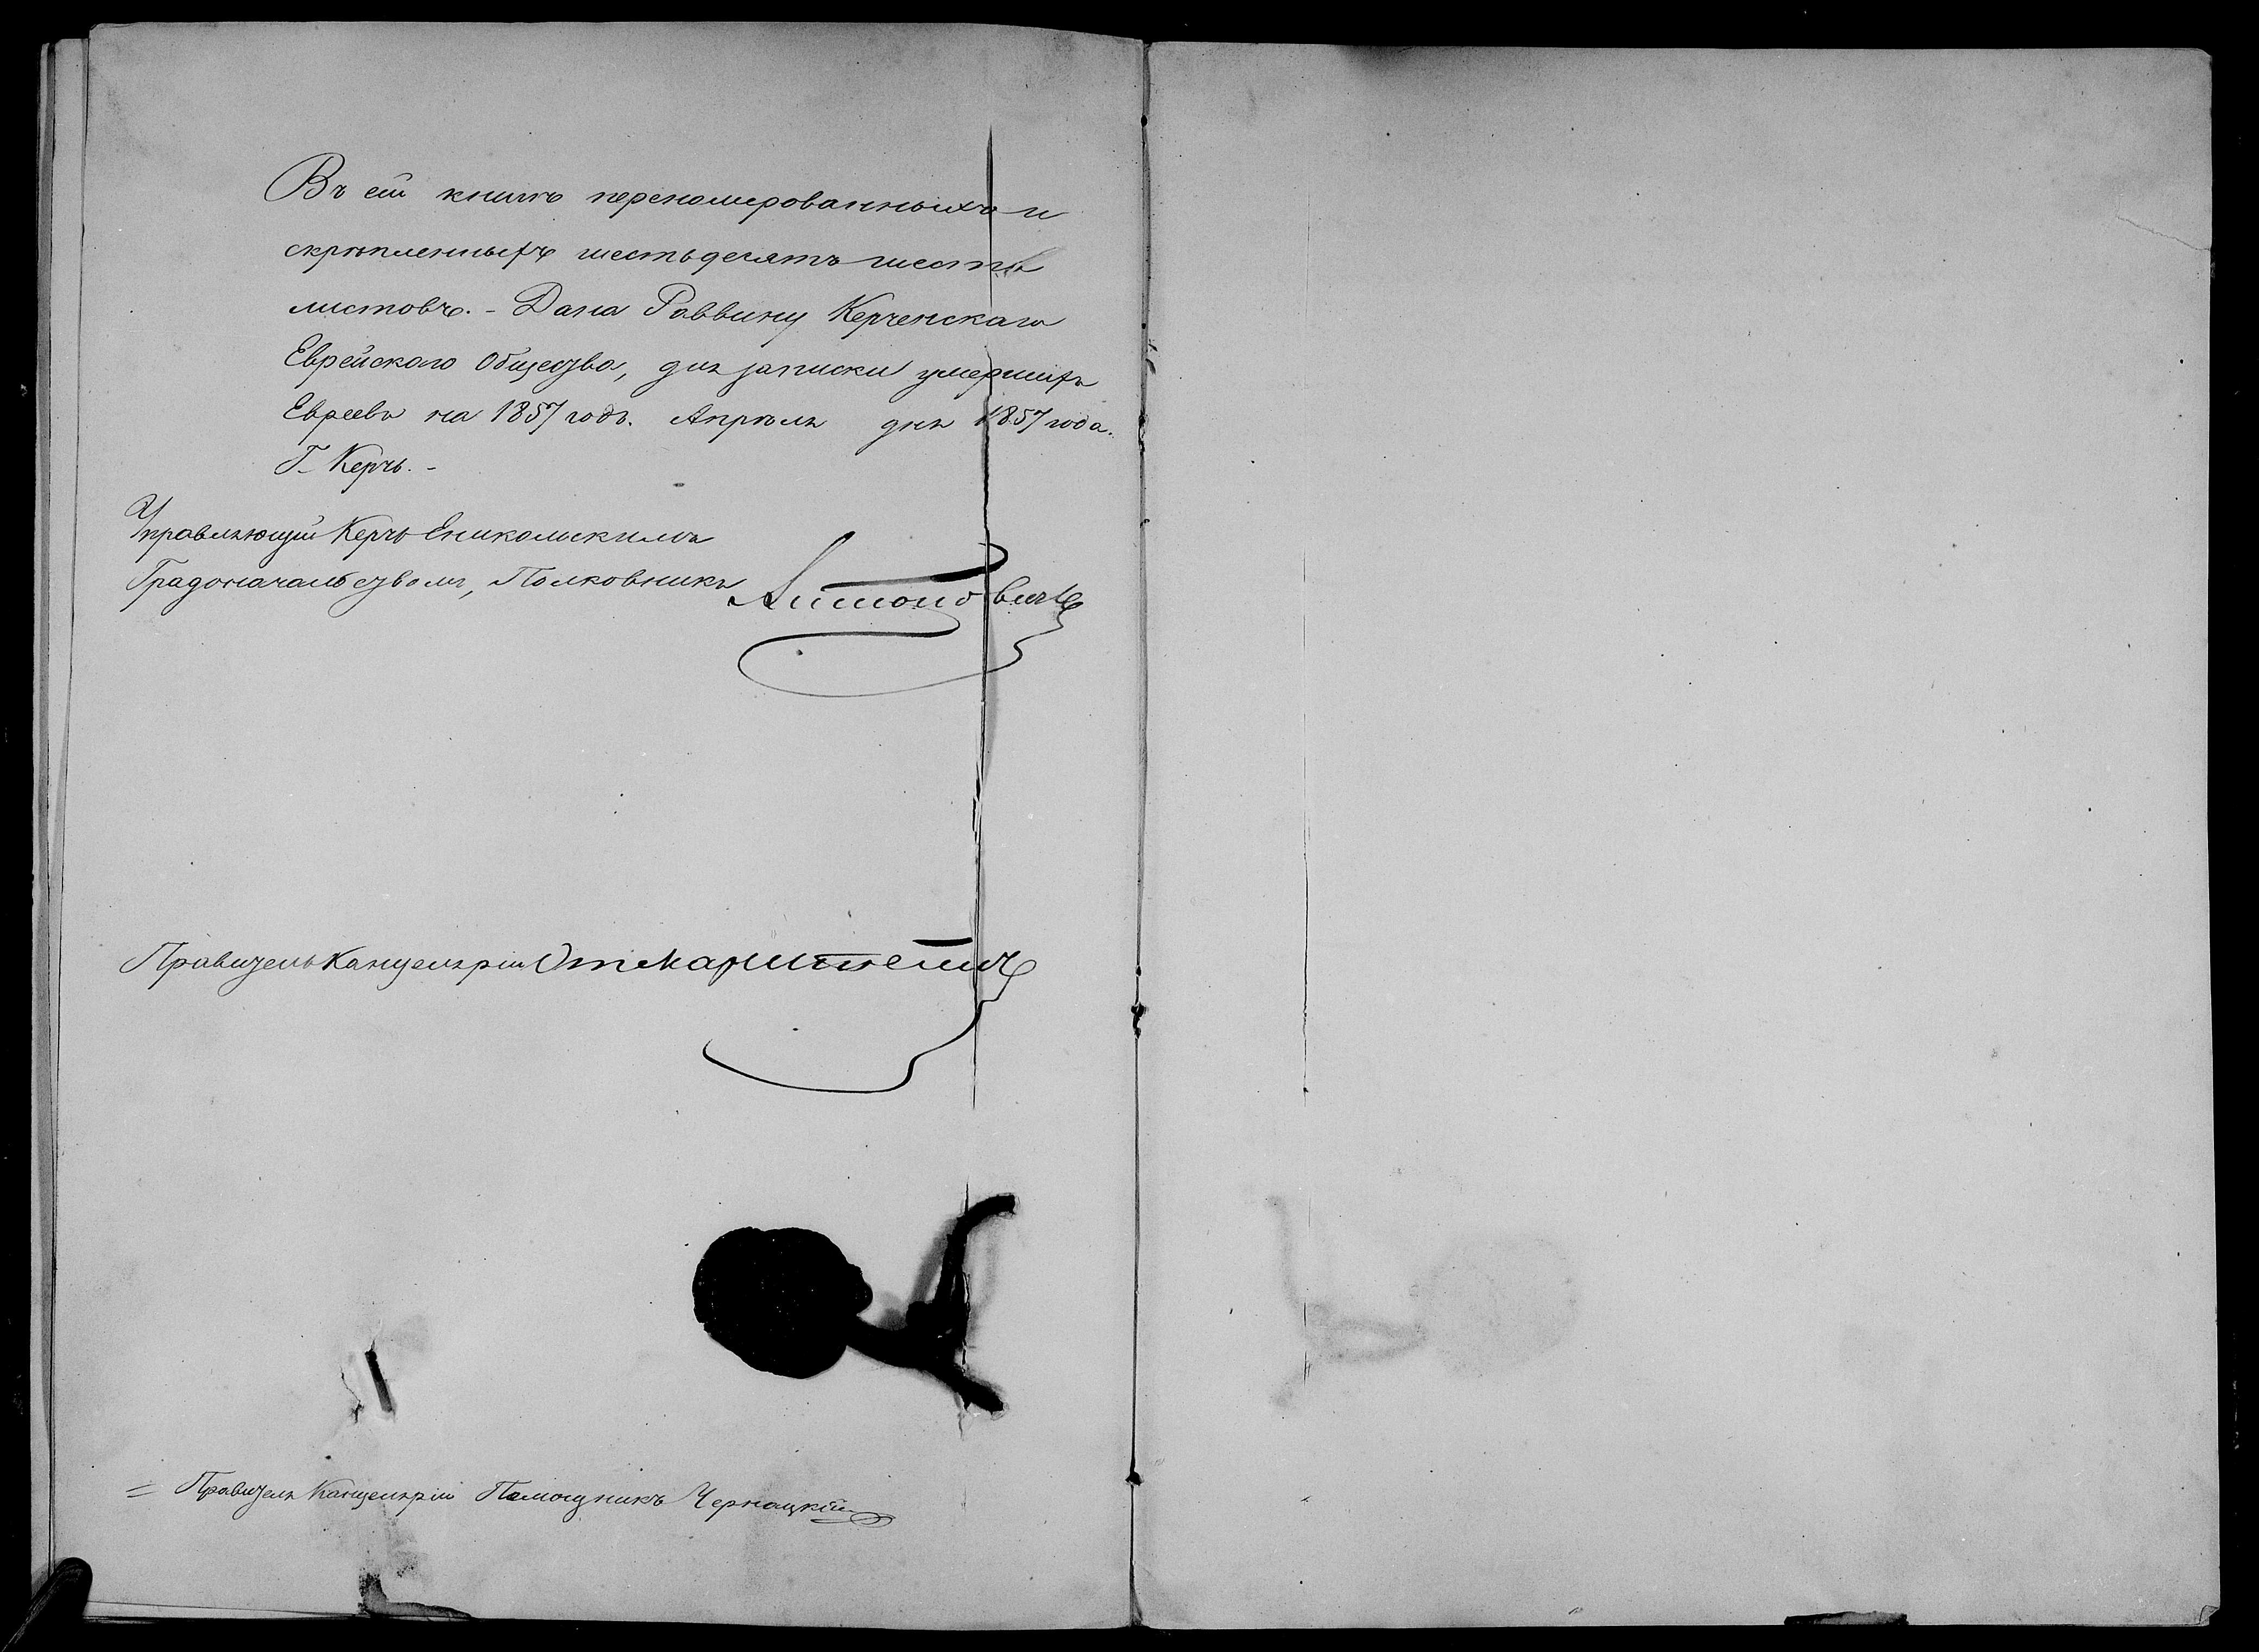 Въ сій книгѣ переномерованныхъ и
скрѣпленныхъ шестьдесятъ шесть
листовъ. - Дана Раввину Керченскаго
Еврейскаго Общества, для записки умершихъ
Евреевъ на 1857 годъ. Апрѣля дня 1857 года.
Г. Керчь. -
Управляющій Керчь Еникольскимъ
Градоначальствомъ, Полковникъ Антоновичъ
Правитель Канцеляріи
= Правителя Канцеляріи Помощникъ Чернацкій